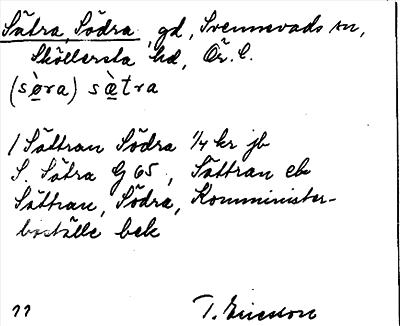 Sätra, Södra, gd, Svennevads sn,
Sköllersta hd, Ör. l.
(sø̀ra) sæ̀tra
/ Sättran Södra 1/4 kr jb
S. Sätra G 65, Sättran eb
Sättran, Södra, Komminister-
boställe bek
T. Ericsson